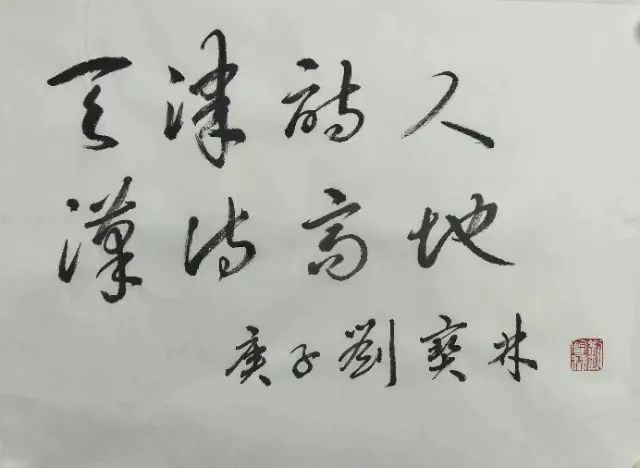 天津詩人
漢诗高地
庚子劉寶林